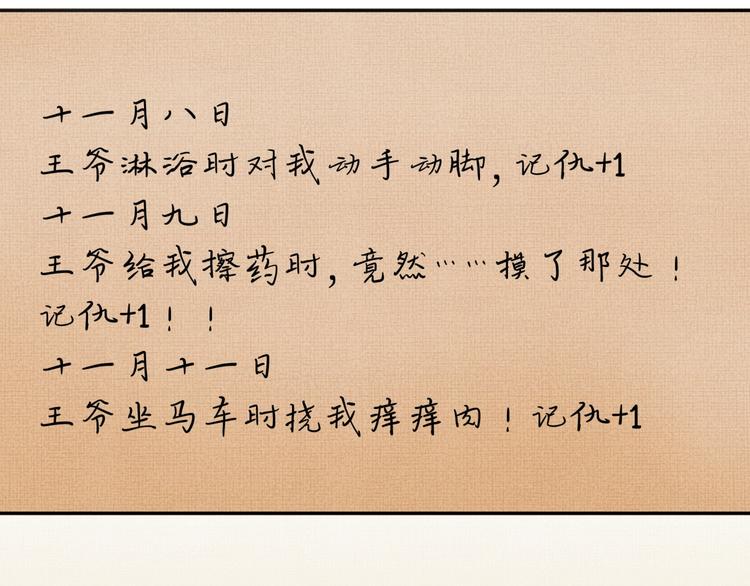 十一月八日
王爷淋浴时对我动手动脚，记仇+1
十一月九日
王爷给我擦药时，竟然……摸了那处！
记仇+1！！
十一月十一日
王爷坐马车时挠我痒痒肉！记仇+1